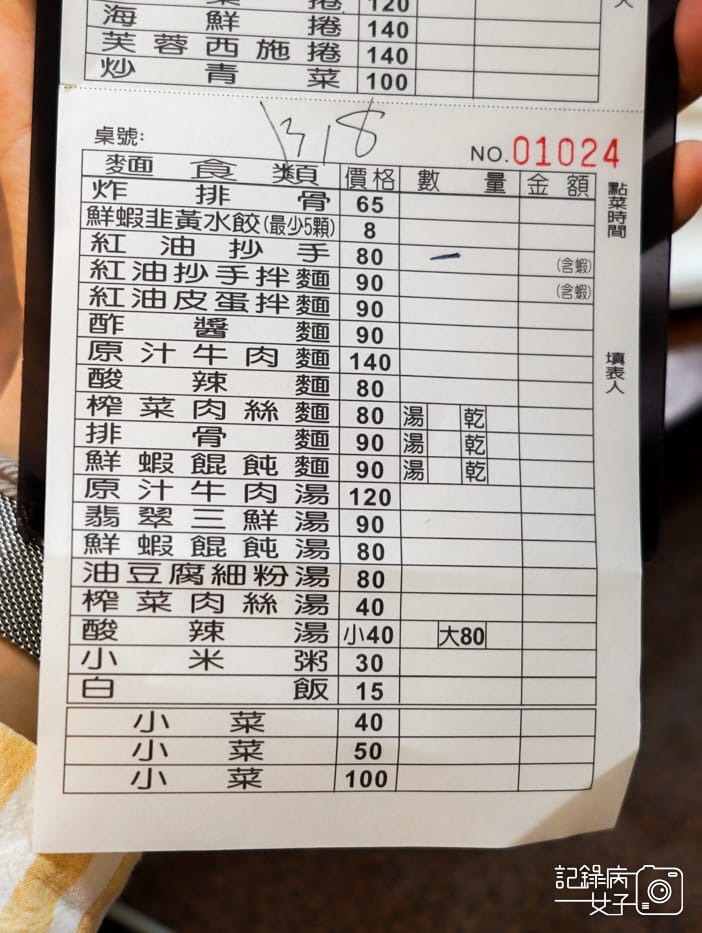 捲 120
海鮮捲 140
芙蓉西施捲 140
炒青菜 100
人
桌號:
NO.01024
麵食類 價格 數量 金額
炸排骨 65
鮮蝦韭黃水餃(最少5顆) 8
紅油抄手 80 (含蝦)
紅油抄手拌麵 90 (含蝦)
紅油皮蛋拌麵 90
酢醬麵 90
原汁牛肉麵 140
酸辣麵 80
榨菜肉絲麵 80 湯 乾
排骨麵 90 湯 乾
鮮蝦餛飩麵 90 湯 乾
原汁牛肉湯 120
翡翠三鮮湯 90
鮮蝦餛飩湯 80
油豆腐細粉湯 80
榨菜肉絲湯 40
酸辣湯 小40 大80
小米粥 30
白飯 15
小菜 40
小菜 50
小菜 100
點菜時間
填表人
記錄病
女子